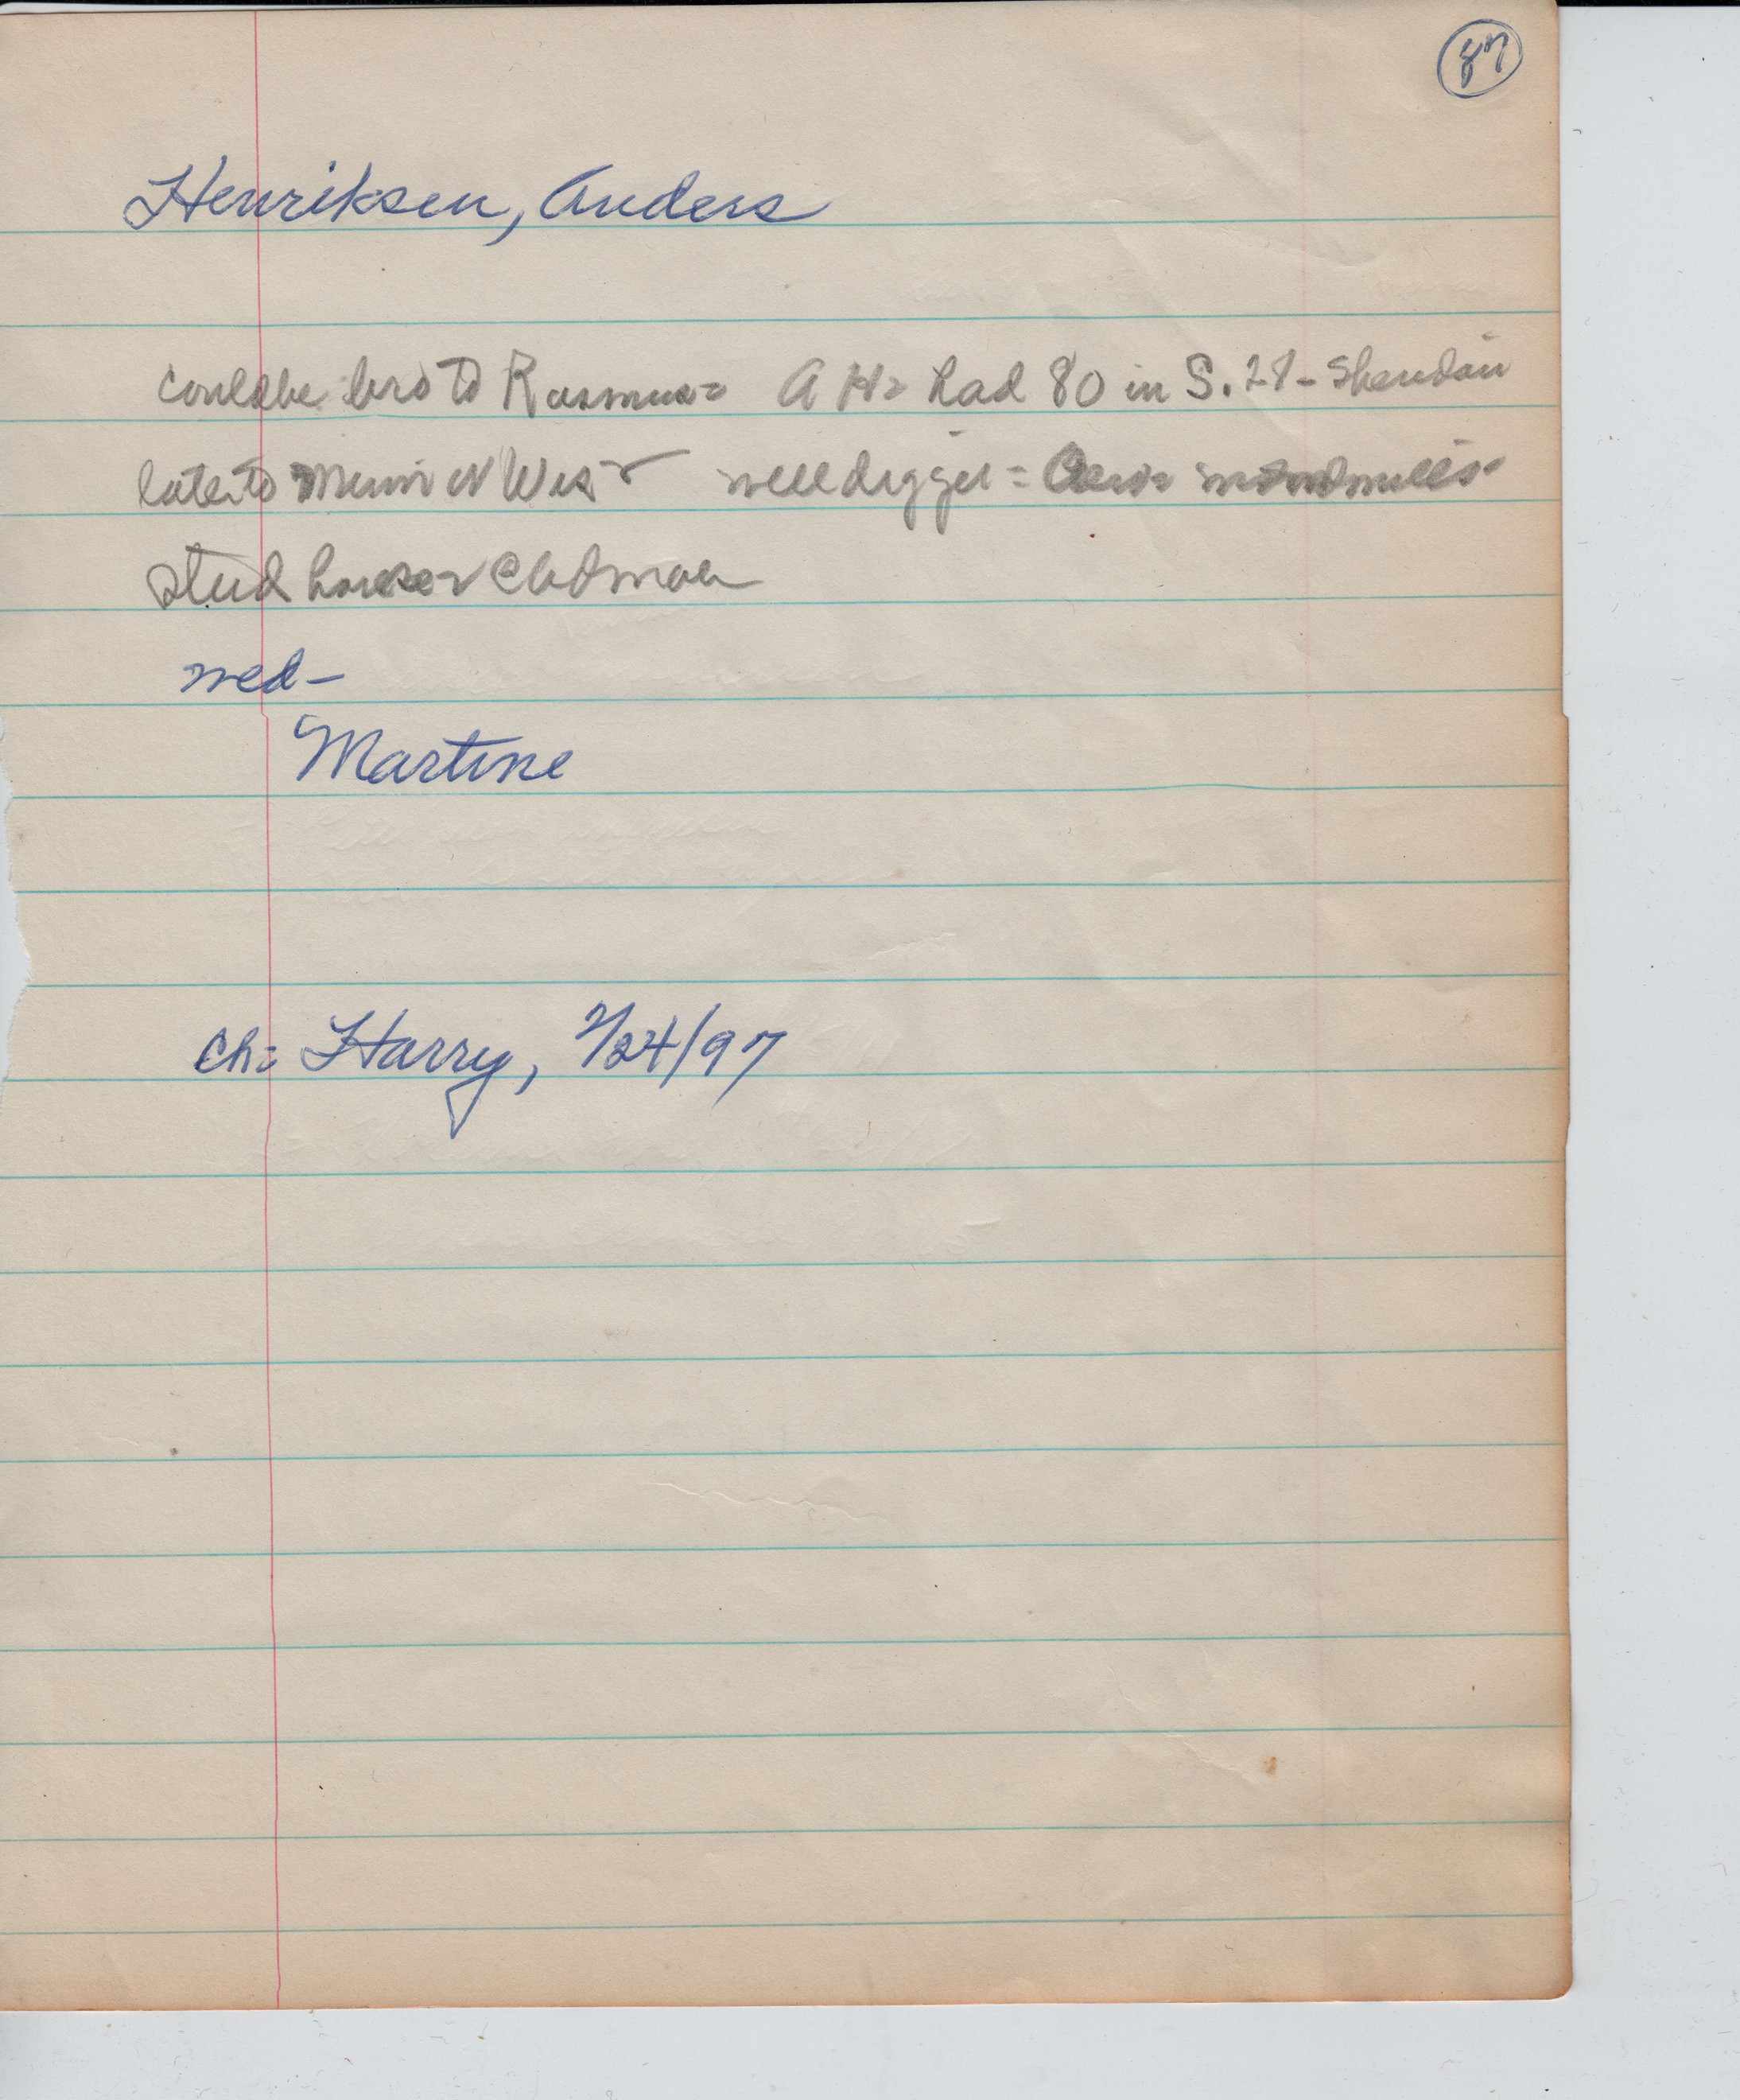 87
Henriksen, Anders
could be bro to Rasmus= A H= had 80 in S. 28 - Sheridan
later to Minn N West well digger = windmills
stud horse
wed-
Martine
ch: Harry, 2/24/97